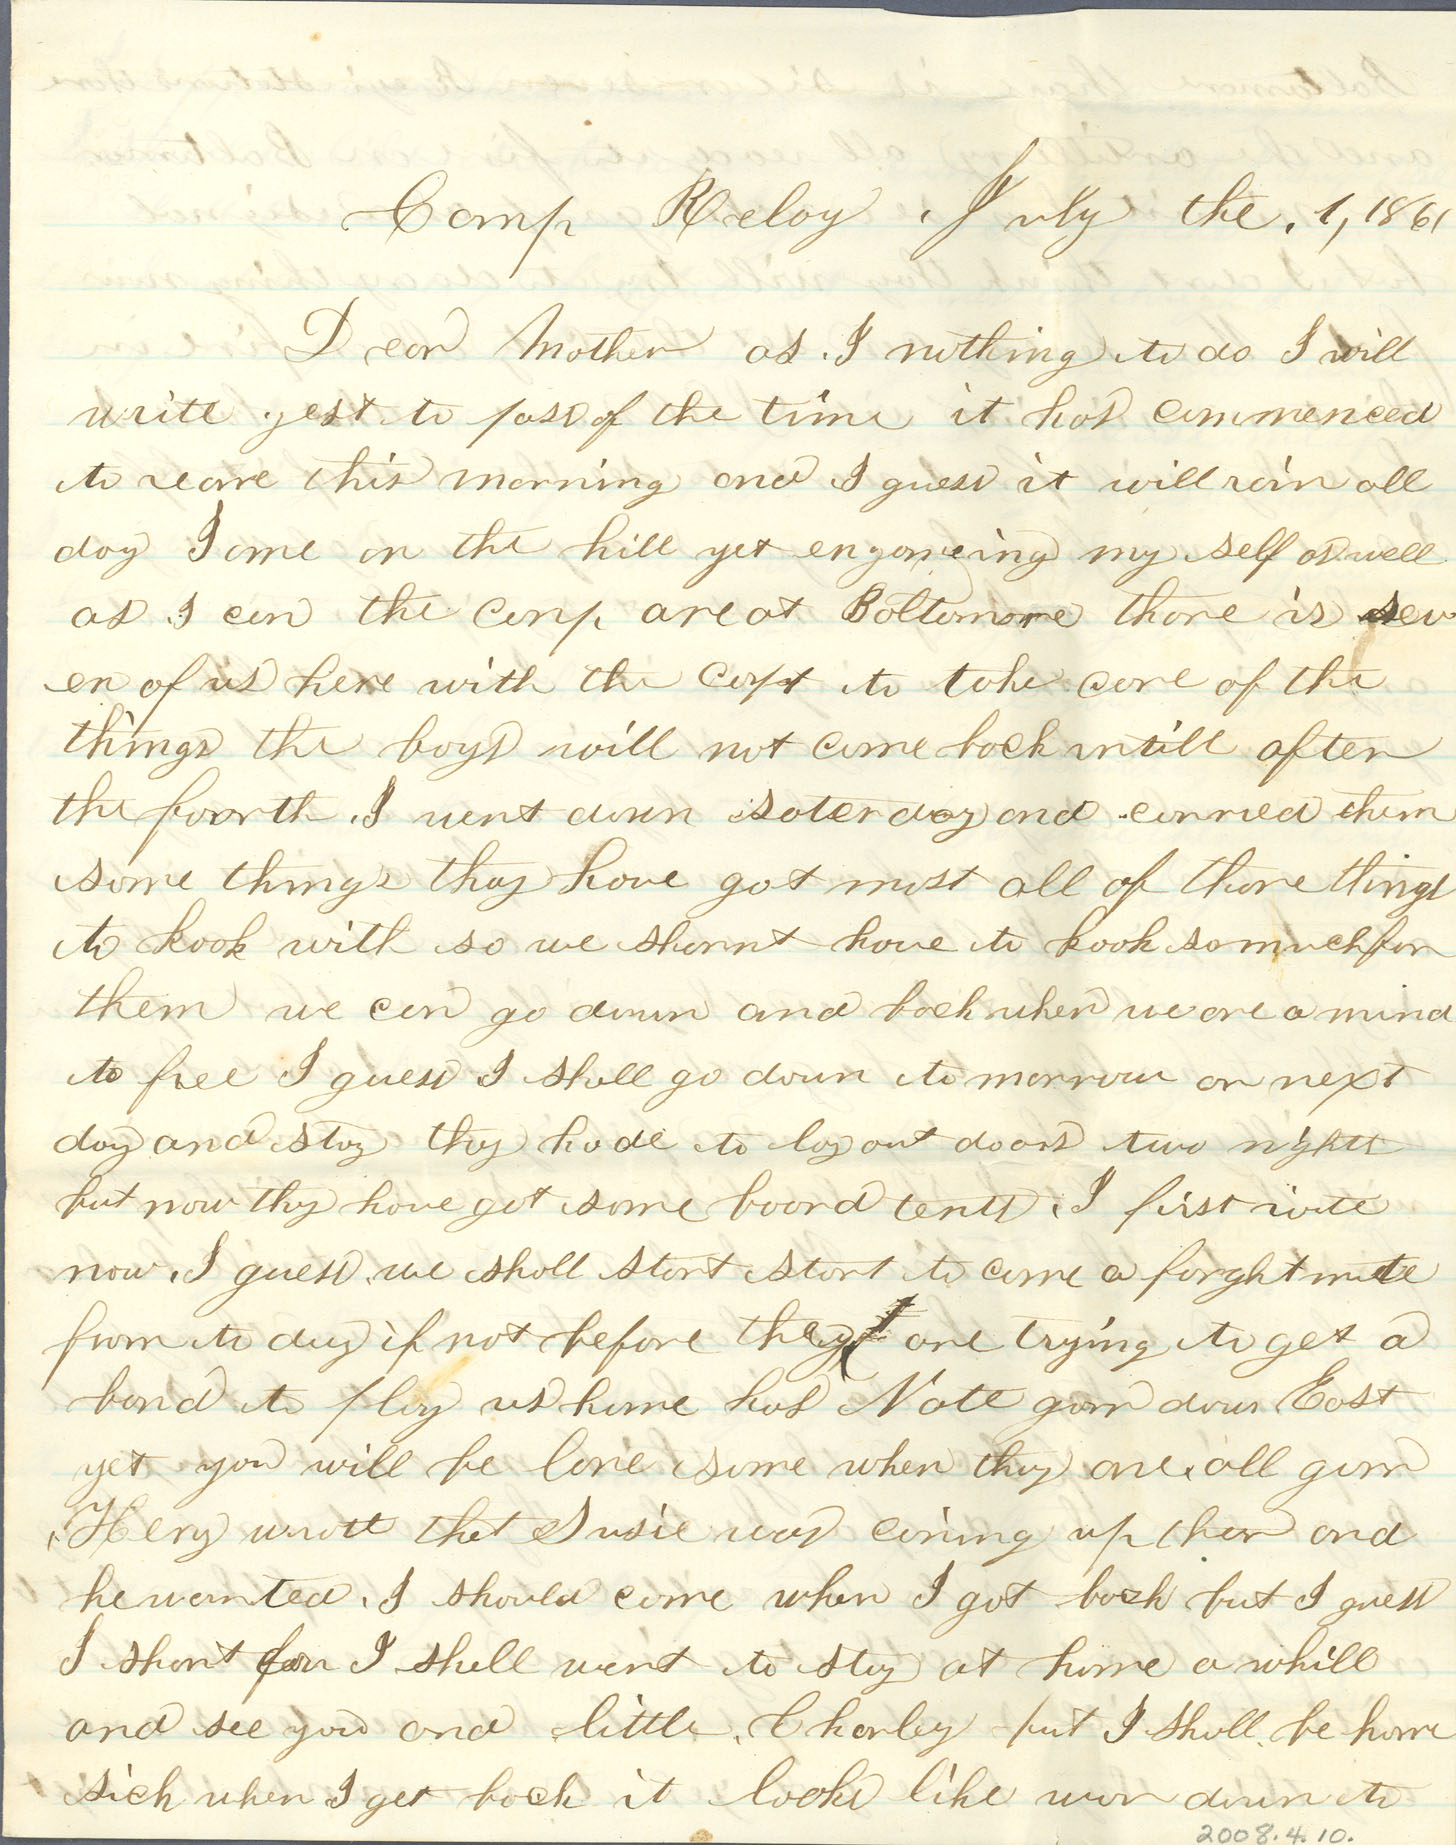 Camp Reloy July the 1, 1861
Dear Mother as I nothing to do I will
write yest to pass of the time it has commenced
to reane this morning and I guess it will rain all
day I ame on the hill yet engoyeing my self as well
as I can the comp are at Boltomore thare is sev
en of us here with the Capt to take care of the
things the boys will not come back untill after
the fourth I went down saterday and carried them
some things thay have got most all of thare things
to kook with so we shannt have to kook so much for
them we can go down and back when we are a mind
to free I guess I shall go down to morrow or next
day and stay thay hade to lay out doors two nights
but now thay have got some board tents I first rate
now I guess we shall start start to come a forghtnite
from to day if not before they are trying to get a
band to play us home has Nate gorn down East
yet you will be lone some when thay are all gorn
Hery wrote that Susie was coming up thare and
he wanted I should come when I got back but I guess
I shant for I shall want to stay at home a whill
and see you and little Charley but I shall be home
sick when I get back it looks like wor down to
2008.4.10.